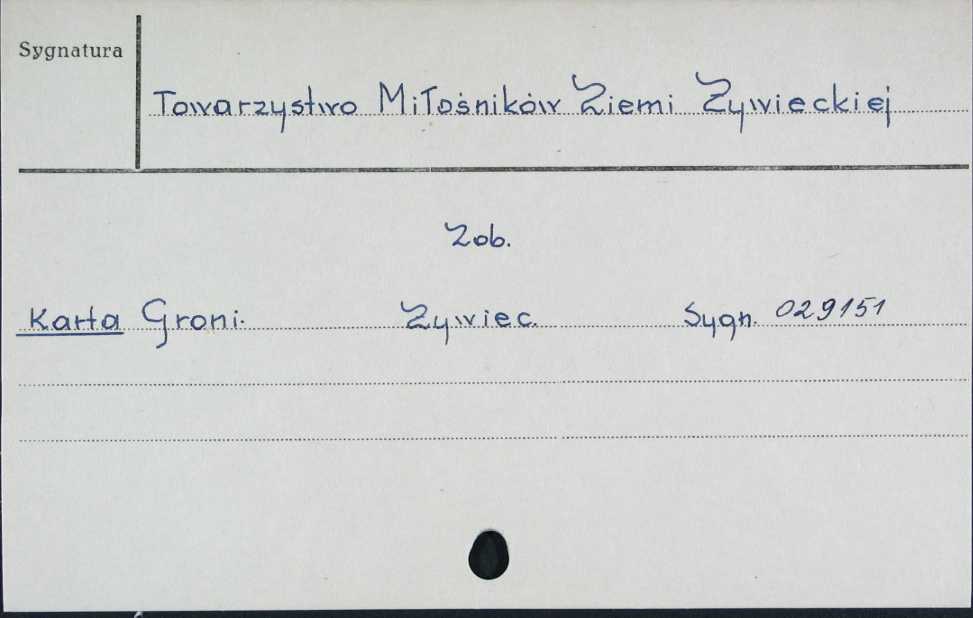 Sygnatura
Towarzystwo Miłośników Ziemi Żywieckiej
Zob.
Karta Groni. Żywiec. Sygn. 029151